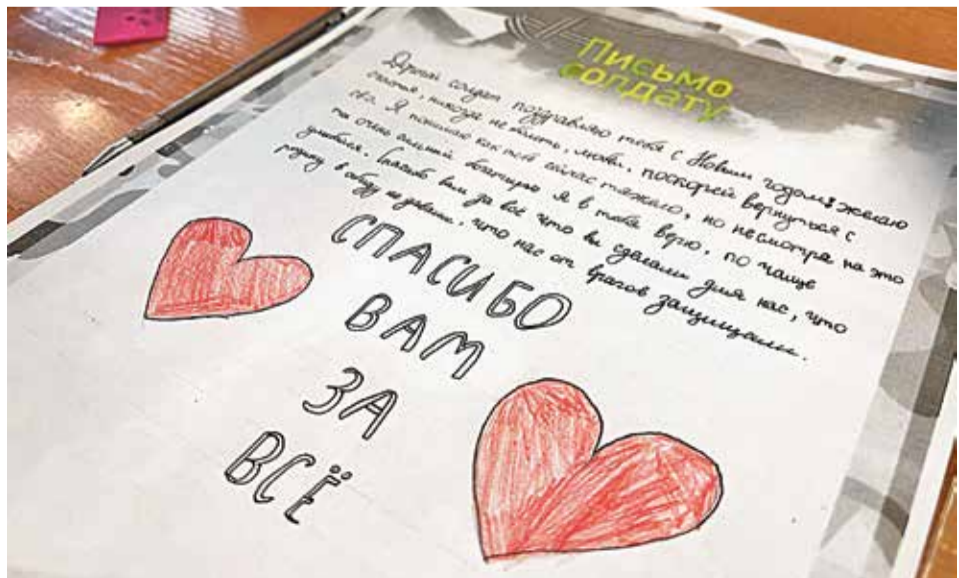 Письмо
солдату
Дорогой солдат поздравляю тебя с Новым годом! желаю
счастья, никогда не болеть, любви, поскорей вернуться с
сво. Я понимаю как сейчас тяжело, но несмотря на это
ты очень сильный богатырь Я в тебя верю, по чаще
улыбайся. Спасибо вам за всё что вы сделали для нас, что
родину в обиду не давали, что нас от врагов защищали.
СПАСИБО
ВАМ
ЗА
ВСЁ